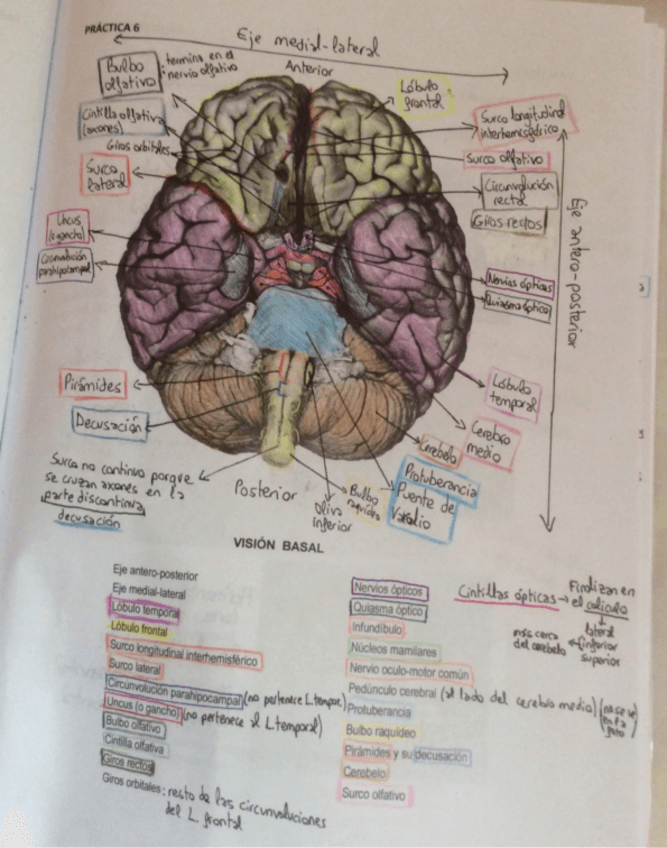 PRÁCTICA 6
Eje medial-lateral
Anterior
Bulbo
olfativo
: termina en el
nervio olfativo
Cintilla olfativa
(axones)
Giros orbitales
Surco
lateral
Uncus
(o gancho)
Circunvolución
parahipocampal
Lóbulo
frontal
Surco longitudinal
interhemisférico
Surco olfativo
Circunvolución
rectal
Giros rectos
Eje antero-posterior
Nervios ópticos
Quiasma óptico
Lóbulo
temporal
Cerebro
medio
Cerebelo
Protuberancia
Puente de
Varolio
Bulbo
raquídeo
Oliva
Inferior
Posterior
Pirámides
Decusación
Surco no continuo porque
se cruzan axones en la
parte discontinua
decusación
VISIÓN BASAL
Eje antero-posterior
Eje medial-lateral
Lóbulo temporal
Lóbulo frontal
Surco longitudinal interhemisférico
Surco lateral
Circunvolución parahipocampal (no pertenece L.tempor)
Uncus (o gancho) (no pertenece al L temporal)
Bulbo olfativo
Cintilla olfativa
Giros rectos
Giros orbitales: resto de las circunvoluciones
del L. frontal
Nervios ópticos
Quiasma óptico
Infundíbulo
Núcleos mamilares
Nervio oculo-motor común
Pedúnculo cerebral (al lado del cerebro medio) (no se ve
en la
foto)
Protuberancia
Bulbo raquídeo
Pirámides y su decusación
Cerebelo
Surco olfativo
Cintillas ópticas → Finalizan en
el colículo
lateral
inferior
superior
más cerca
del cerebelo